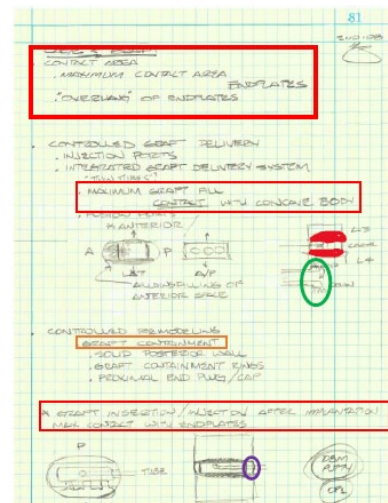 81
CONTACT AREA
· MAXIMUM CONTACT AREA
ENDPLATES
· "OVERHANG" OF ENDPLATES
· CONTROLLED GRAFT DELIVERY
· INJECTION PORTS
· INTEGRATED GRAFT DELIVERY SYSTEM
· MAXIMUM GRAFT FILL
CONTACT WITH CONCAVE BODY
ANTERIOR
A P
L3
L4
LAT A/P
ALLOWS FILLING OF
ANTERIOR SPACE
· CONTROLLED REMODELING
· GRAFT CONTAINMENT
· SOLID POSTERIOR WALL
· GRAFT CONTAINMENT RINGS
· PROXIMAL END PLUG/CAP
* GRAFT INSERTION/INJECTION AFTER IMPLANTATION
MAX CONTACT WITH ENDPLATES
P
TUBE
DBM
PUTTY
OP1